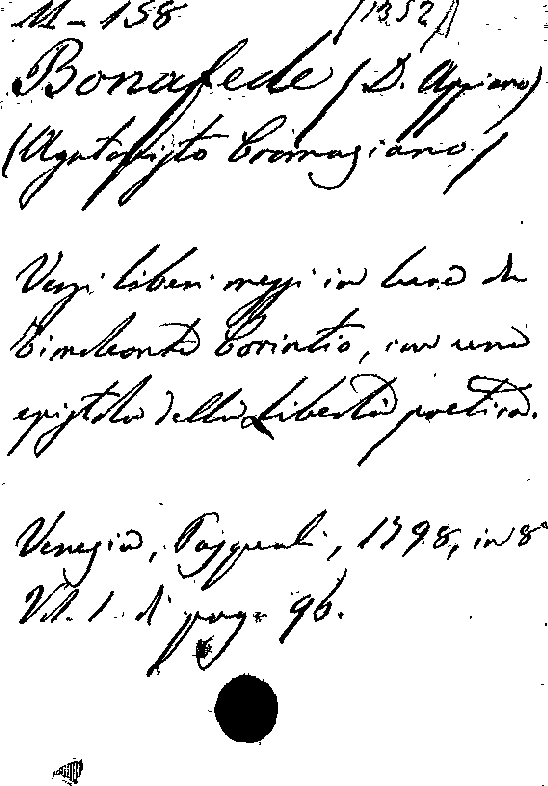 M-158 (1352)
Bonafede (D. Appiano)
(Agatopisto Cromaziano)
Versi liberi messi in luce da
Timoleonte Corintio, con una
epistola della Libertà poetica.
Venezia, Pasquali, 1798, in 8°
Vol. 1 di pag. 96.